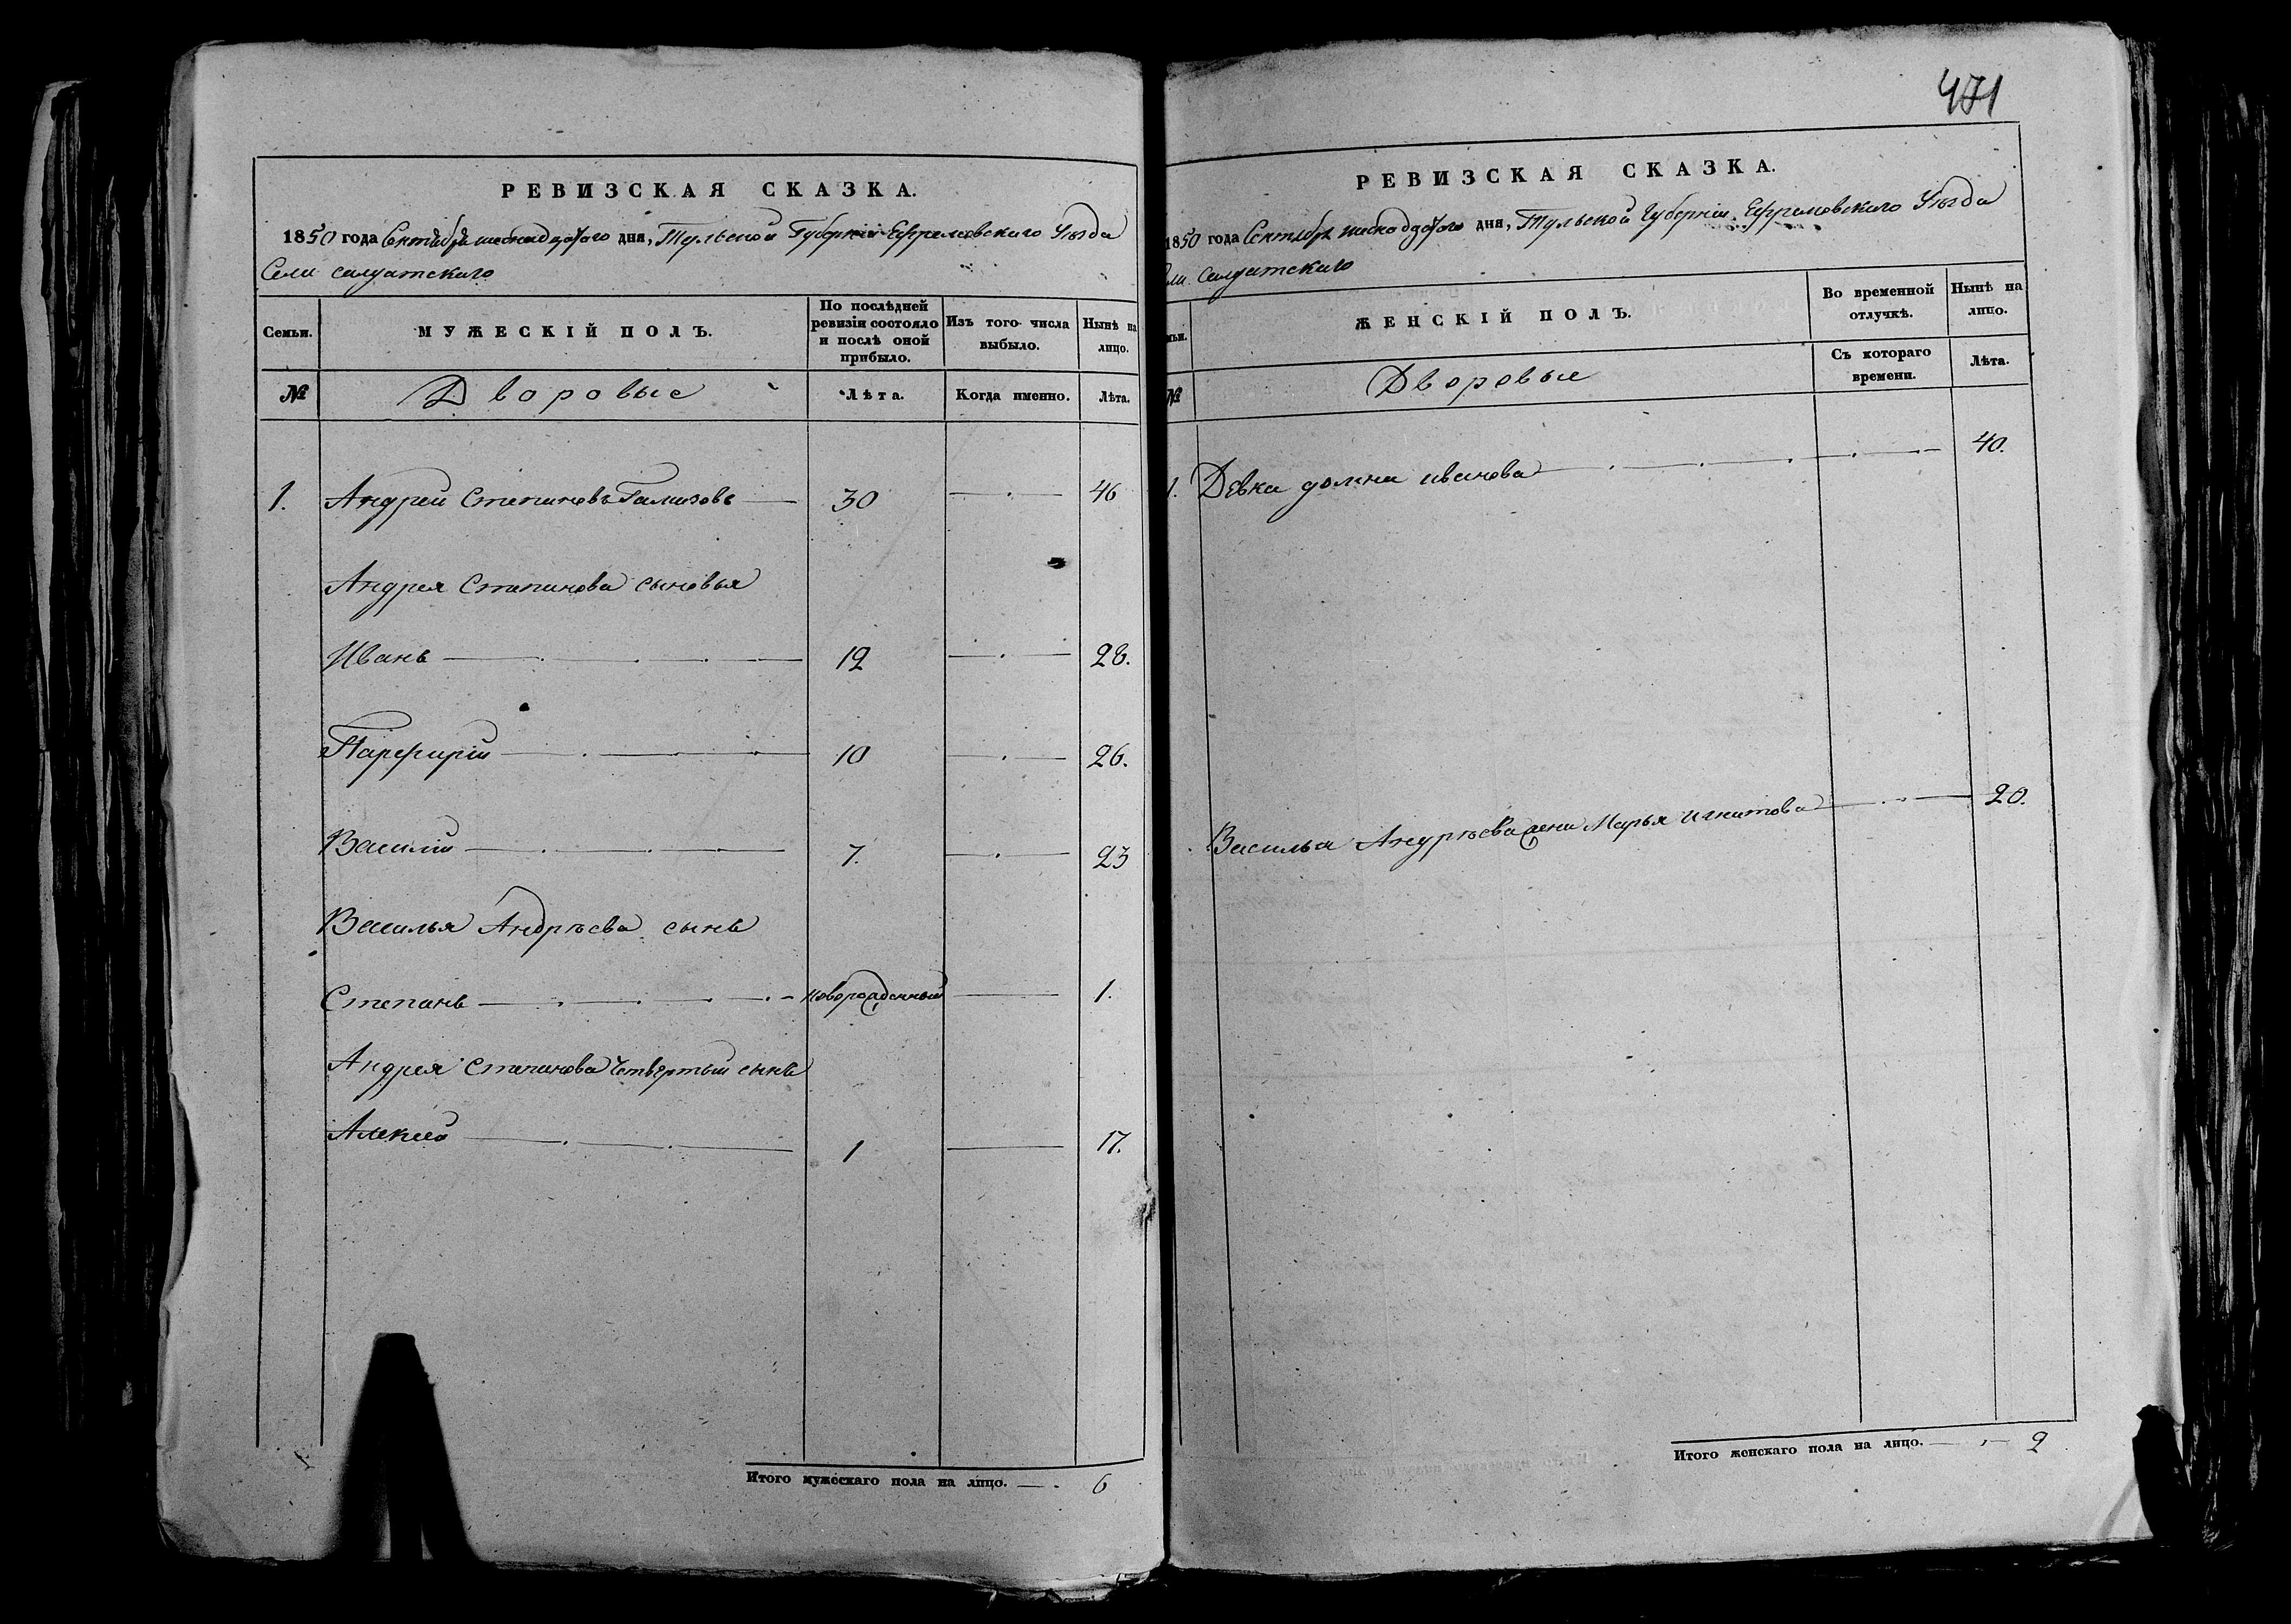 РЕВИЗСКАЯ СКАЗКА.
1850 года Сентября шеснадцатого дня, Тульской Губернiи Ефремовскаго Уезда
Села салдатскаго
Семьи.
МУЖЕСКIЙ ПОЛЪ.
По послѣдней ревизiи состояло и послѣ оной прибыло.
Изъ того числа выбыло.
Нынѣ на лицо.
№
Дворовые
Лѣта.
Когда именно.
Лѣта.
1. Андрей Степановъ 30 46
Андрея Степанова сыновья
Иванъ 12 28.
Парфирiй 10 26.
Василiй 7. 23
Василья Андрѣева сынъ
Степанъ новорожденный 1.
Андрея Степанова четвертый сынъ
Алексей 1 17.
Итого мужескаго пола на лицо. 6
471
РЕВИЗСКАЯ СКАЗКА.
1850 года Сентября шеснадцатого дня, Тульской Губернiи Ефремовскаго Уезда
ла салдатскаго
мьи.
ЖЕНСКIЙ ПОЛЪ.
Во временной отлучкѣ.
Нынѣ на лицо.
№
Дворовые
Съ котораго времени.
Лѣта.
1. Девка домна иванова 40.
Василья Андрѣева жена Марья игнатова 20.
Итого женскаго пола на лицо. 2